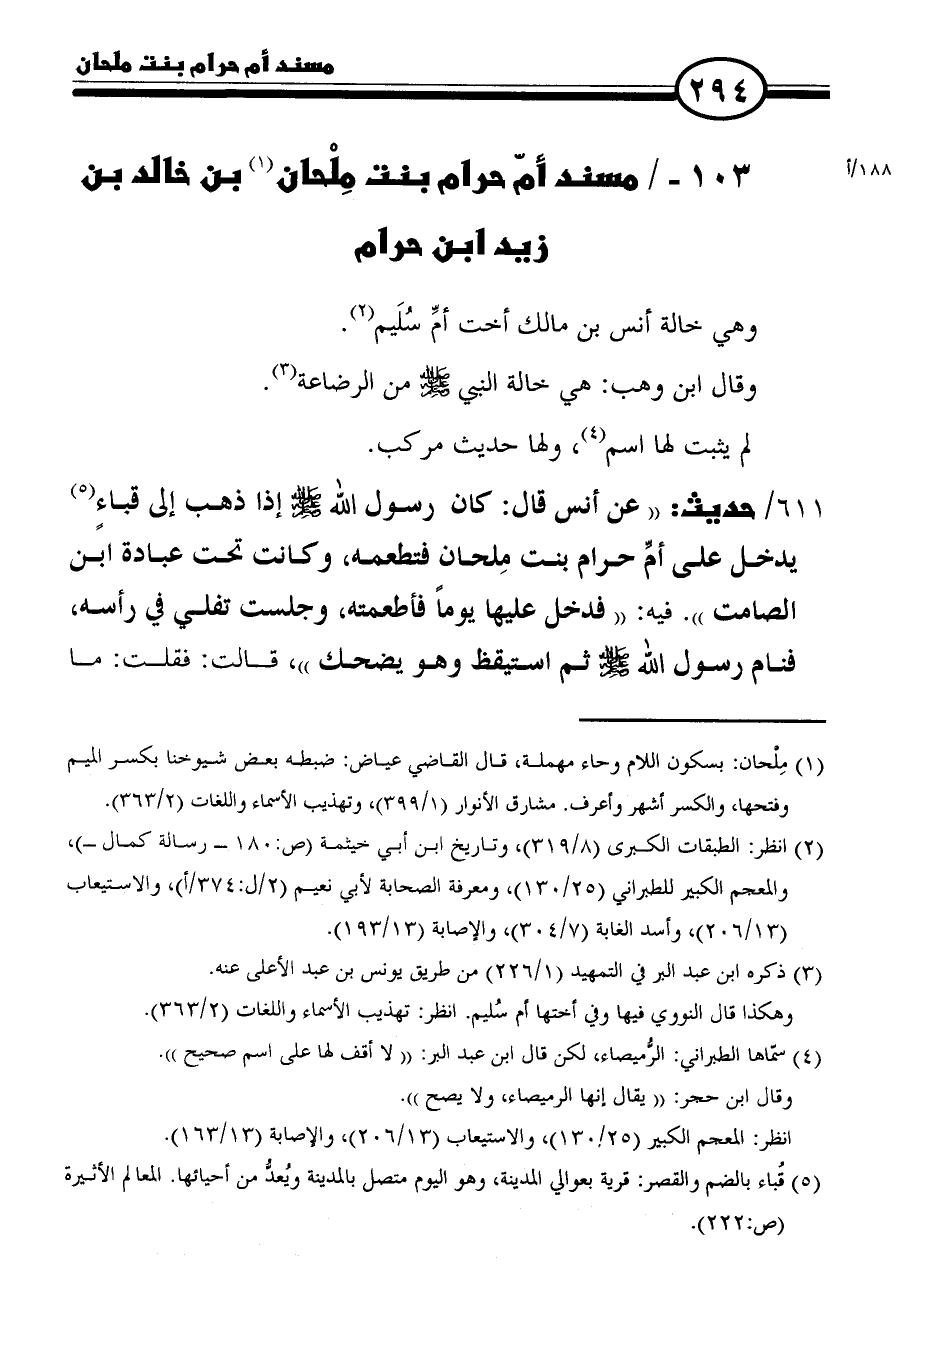 مسند أم حرام بنت ملحان
٢٩٤
١٨٨/أ
١٠٣ - / مسند أمّ حرام بنت مِلْحان(١) بن خالد بن
زيد ابن حرام
وهي خالة أنس بن مالك أخت أمِّ سُلَيم(٢).
وقال ابن وهب: هي خالة النبي ﷺ من الرضاعة(٣).
لم يثبت لها اسم(٤)، ولها حديث مركب.
٦١١/ حديث: « عن أنس قال: كان رسول الله ﷺ إذا ذهب إلى قباءٍ(٥)
يدخل على أمِّ حرام بنت مِلحان فتطعمه، وكانت تحت عبادة ابن
الصامت ». فيه: « فدخل عليها يوماً فأطعمته، وجلست تفلي في رأسه،
فنام رسول الله ﷺ ثم استيقظ وهو يضحك »، قالت: فقلت: ما
(١) مِلْحان: بسكون اللام وحاء مهملة، قال القاضي عياض: ضبطه بعض شيوخنا بكسر الميم
وفتحها، والكسر أشهر وأعرف. مشارق الأنوار (٣٩٩/١)، وتهذيب الأسماء واللغات (٣٦٣/٢).
(٢) انظر: الطبقات الكبرى (٣١٩/٨)، وتاريخ ابن أبي خيثمة (ص:١٨٠ - رسالة كمال -)،
والمعجم الكبير للطبراني (١٣٠/٢٥)، ومعرفة الصحابة لأبي نعيم (٢/ل:٣٧٤/أ)، والاستيعاب
(٢٠٦/١٣)، وأسد الغابة (٣٠٤/٧)، والإصابة (١٩٣/١٣).
(٣) ذكره ابن عبد البر في التمهيد (٢٢٦/١) من طريق يونس بن عبد الأعلى عنه.
وهكذا قال النووي فيها وفي أختها أم سُليم. انظر: تهذيب الأسماء واللغات (٣٦٣/٢).
(٤) سمّاها الطبراني: الرُّميصاء، لكن قال ابن عبد البر: « لا أقف لها على اسم صحيح ».
وقال ابن حجر: « يقال إنها الرميصاء، ولا يصح ».
انظر: المعجم الكبير (١٣٠/٢٥)، والاستيعاب (٢٠٦/١٣)، والإصابة (١٦٣/١٣).
(٥) قُباء بالضم والقصر: قرية بعوالي المدينة، وهو اليوم متصل بالمدينة ويُعدُّ من أحيائها. المعالم الأثيرة
(ص:٢٢٢).